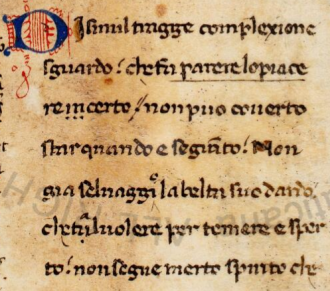 Disimil tragge complexione
sguardo. che fa parere lo piace
re incerto. non puo couerto
star quando e segiũto. Non
gia seluagg̃ la belta suo dardo.
che tal uolere per temere e sper
to. non segue merto spirito che